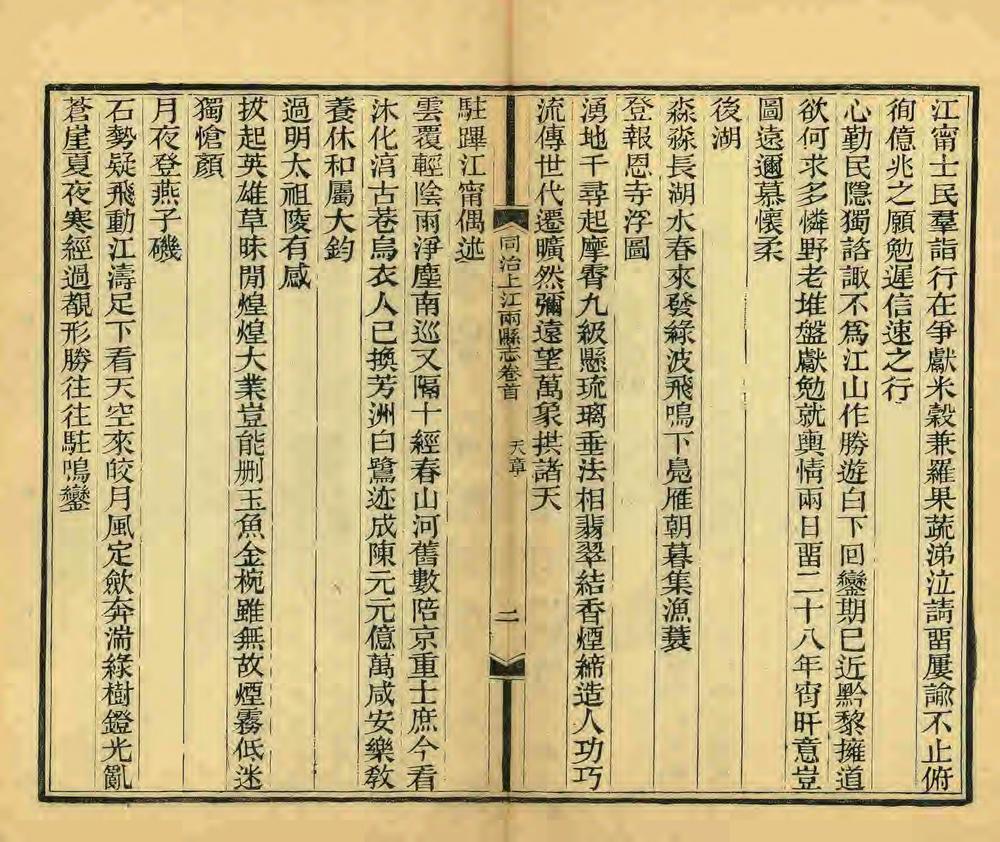 江甯士民羣詣行在爭獻米穀兼羅果蔬涕泣請畱屢諭不止俯
徇億兆之願勉遲信速之行
心勤民隱獨諮諏不爲江山作勝遊白下回鑾期已近黔黎擁道
欲何求多憐野老堆盤獻勉就輿情兩日畱二十八年宵旰意豈
圖遠邇慕懷柔
後湖
淼淼長湖水春來發綠波飛鳴下鳧雁朝暮集漁蓑
登報恩寺浮圖
湧地千尋起摩霄九級懸琉璃垂法相翡翠結香煙締造人功巧
流傳世代遷曠然彌遠望萬象拱諸天
同治上江兩縣志卷首 天章 二
駐蹕江甯偶述
雲覆輕陰雨淨塵南巡又隔十經春山河舊數陪京重士庶今看
沐化湻古巷烏衣人已換芳洲白鷺迹成陳元元億萬咸安樂敎
養休和屬大鈞
過明太祖陵有感
拔起英雄草昧閒煌煌大業豈能刪玉魚金椀雖無故煙霧低迷
獨愴顏
月夜登燕子磯
石勢疑飛動江濤足下看天空來皎月風定斂奔湍綠樹鐙光亂
蒼崖夏夜寒經過覩形勝往往駐鳴鑾